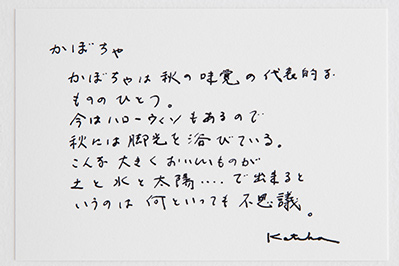 かぼちゃ
かぼちゃは秋の味覚の代表的な
もののひとつ。
今はハローウィンもあるので
秋には脚光を浴びている。
こんな大きくおいしいものが
土と水と太陽‥‥で出来ると
いうのは何といっても不思議。